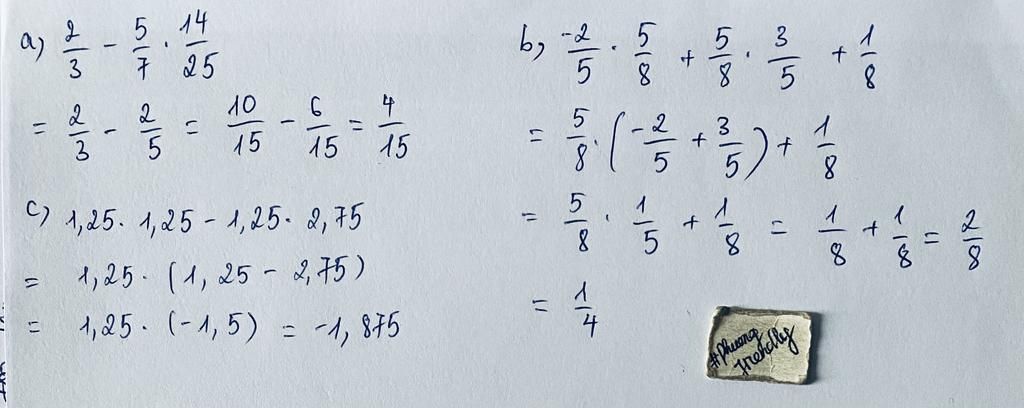 a) 2/3 - 5/7 . 14/25
= 2/3 - 2/5 = 10/15 - 6/15 = 4/15
c) 1,25. 1,25 - 1,25. 2,75
= 1,25. (1,25 - 2,75)
= 1,25. (-1,5) = -1,875
b) -2/5 . 5/8 + 5/8 . 3/5 + 1/8
= 5/8 . (-2/5 + 3/5) + 1/8
= 5/8 . 1/5 + 1/8 = 1/8 + 1/8 = 2/8
= 1/4
#Phuong